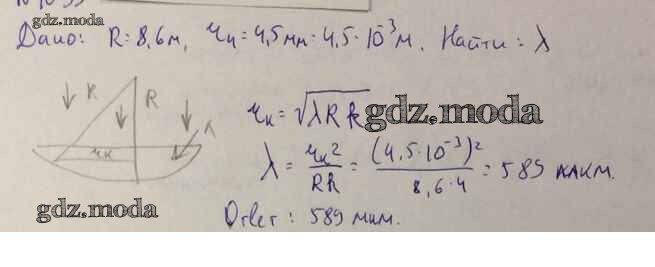 gdz.moda
Дано: R = 8,6 м, r₄ = 4,5 мм = 4,5 · 10⁻³ м. Найти: λ
R R
rₖ = √λRk gdz.moda
rₖ
λ = rₖ²/Rk = (4,5·10⁻³)²/8,6·4 = 589 мкм.
gdz.moda
Ответ: 589 мкм.